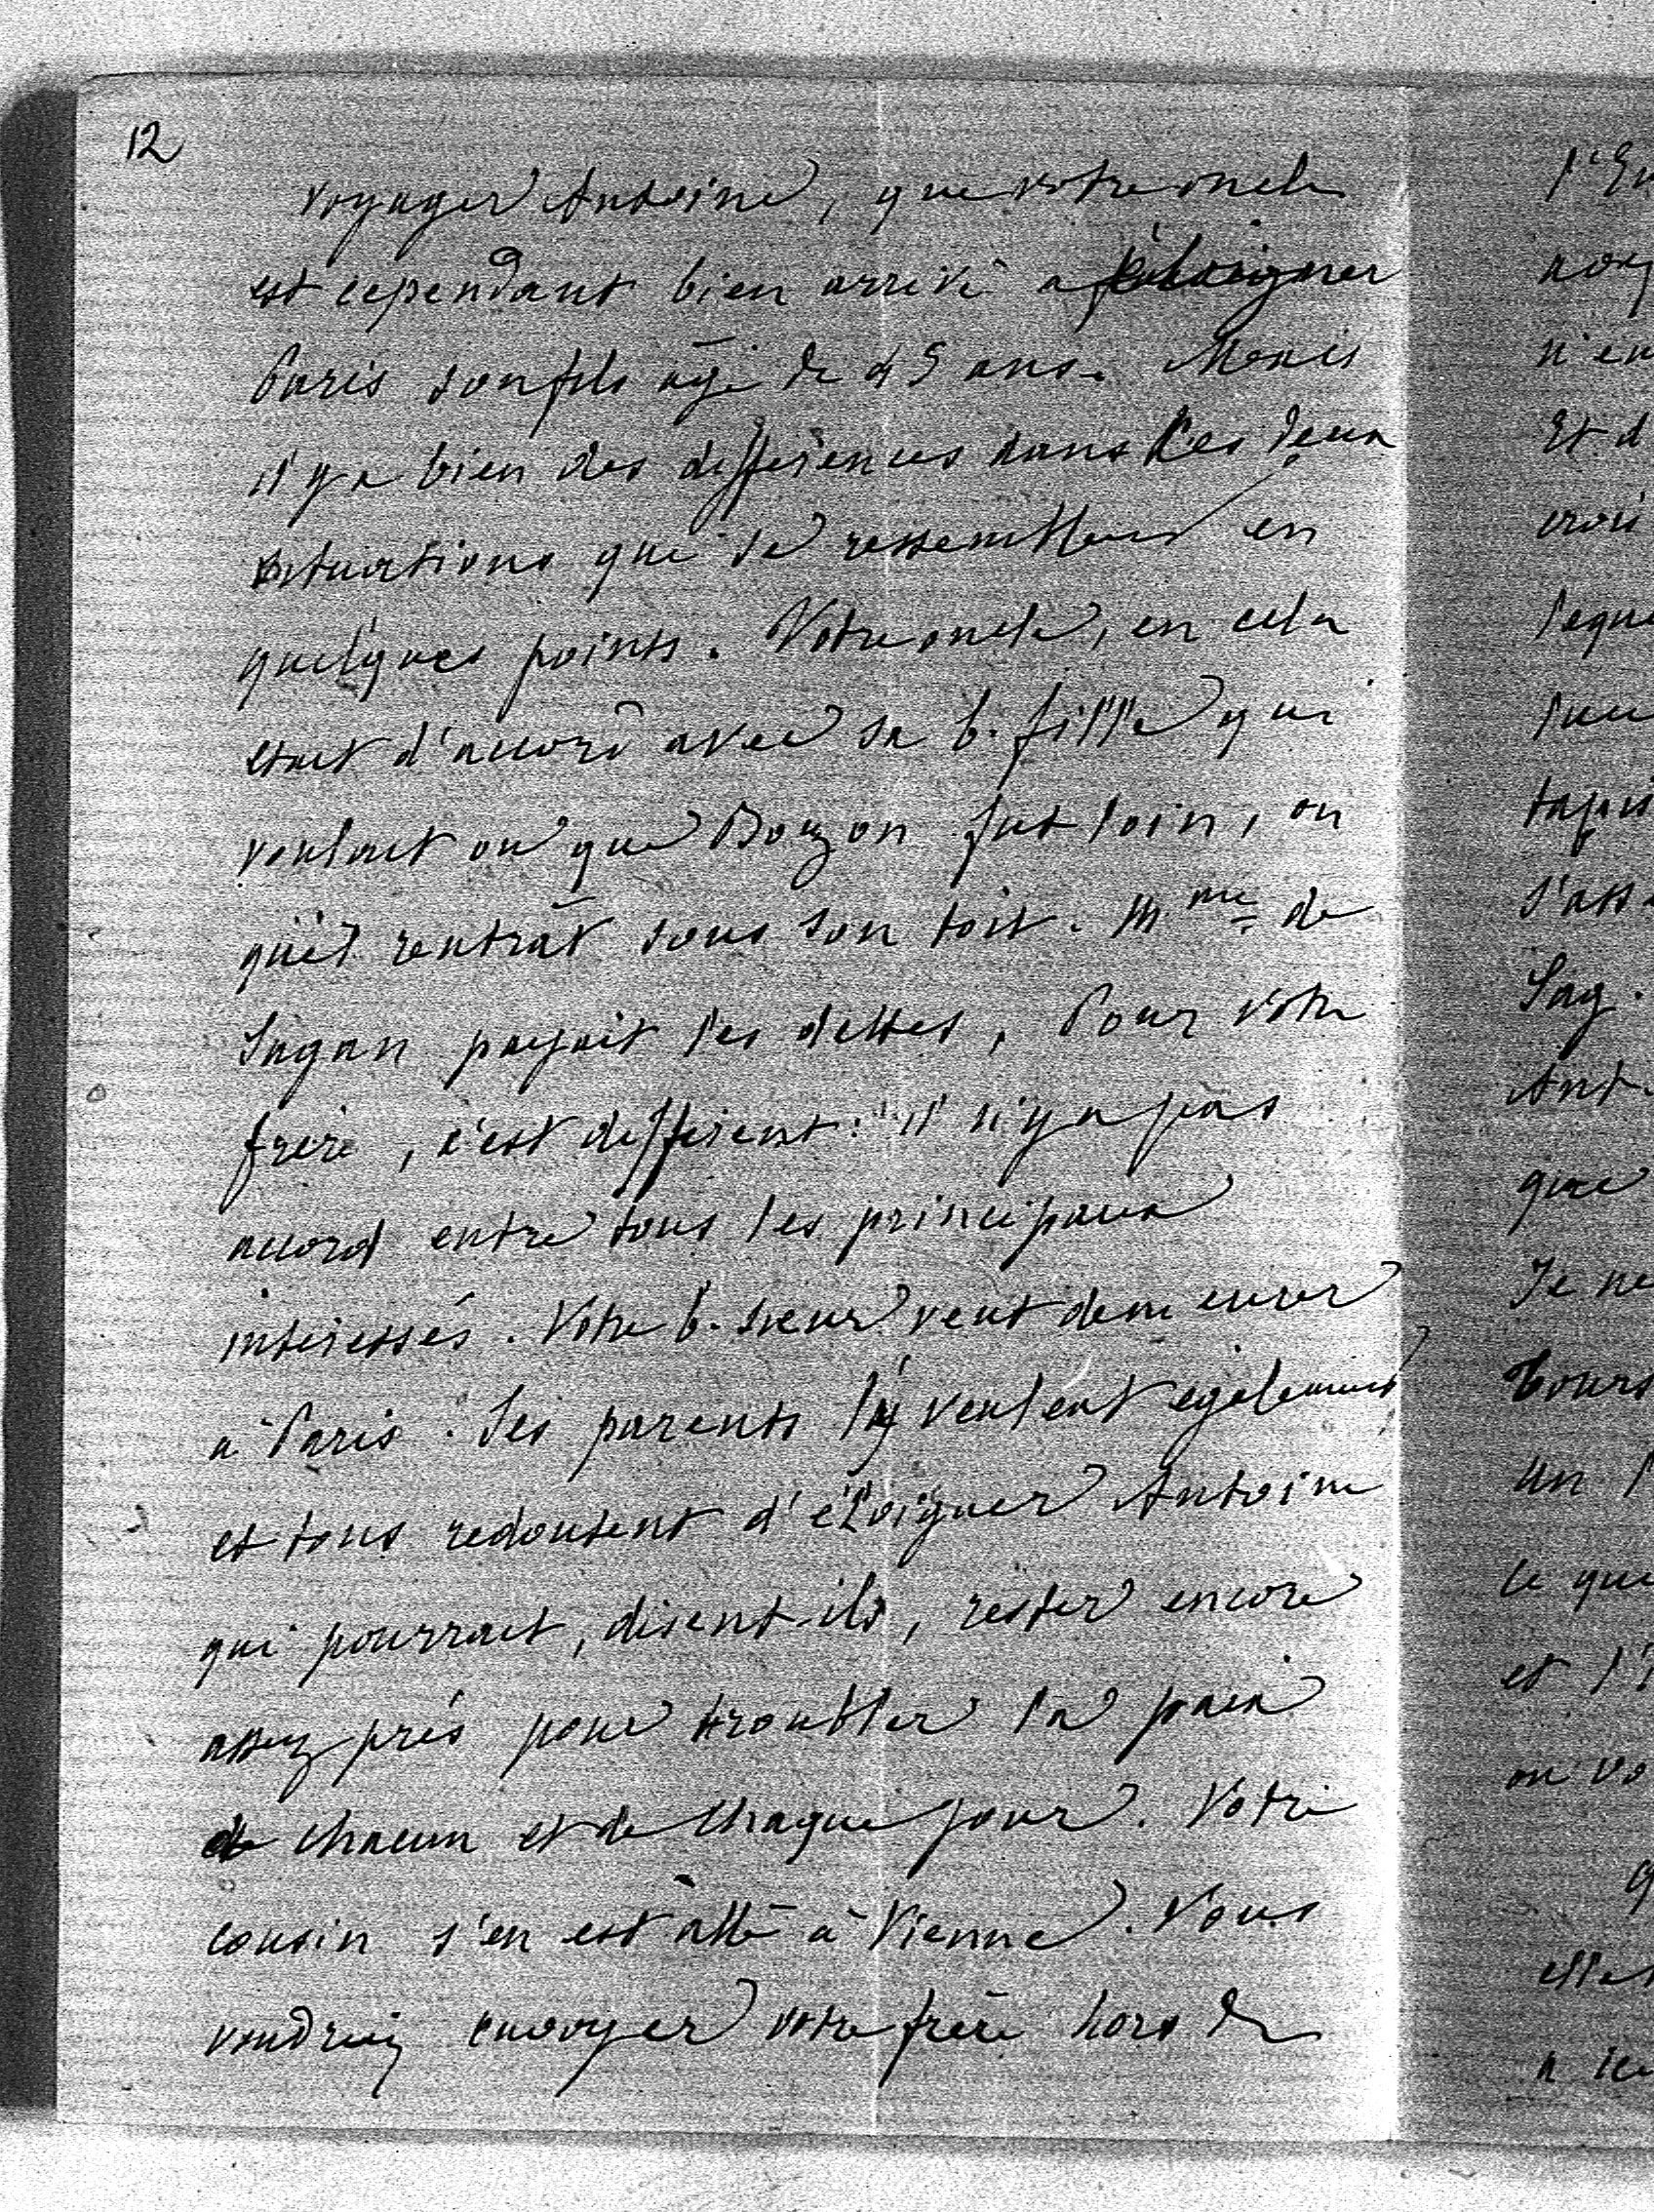 12
voyager Antoine, que votre oncle
est cependant bien arrivé a éloigner
Paris son fils agé de 45 ans. Mais
il y a bien des différences dans les deux
situations qui se ressemblent en
quelques points. Votre oncle, en cela
etait d'accord avec sa b. fille qui
voulait ou que Bozon fut loin, ou
qu'il rentrât sous son toit. Mme de
Sagan payait les dettes, Pour votre
frère, c'est différent: il n'y a pas
accord entre tous les principaux
intéressés. Votre b. soeur veut demeurer
à Paris. Ses parents l'y veulent également
et tous redoutent d'éloigner Antoine
qui pourrait, disent ils, rester encore
assez près pour troubler la paix
de chacun et de chaque jour. Votre
cousin s'en est allé à Vienne. Vous
voudriez envoyer votre frère hors de